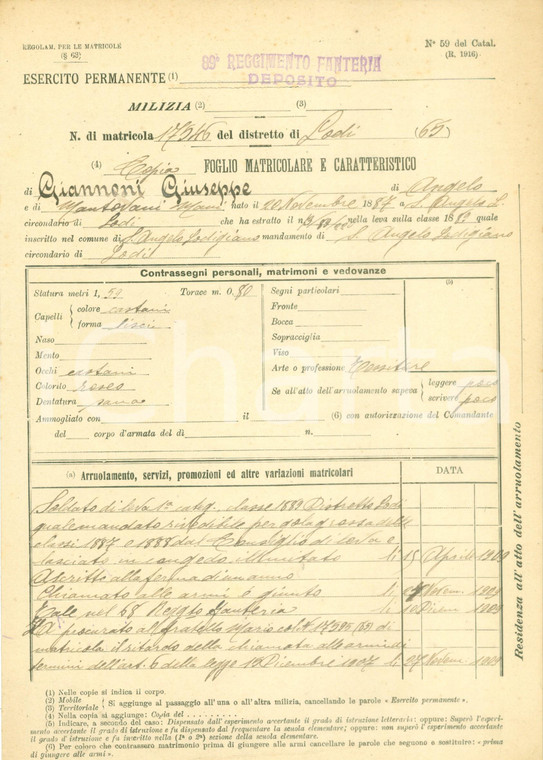 REGOLAM. PER LE MATRICOLE
(§ 63)
N° 59 del Catal.
(R. 1916)
ESERCITO PERMANENTE (1)
REGGIMENTO FANTERIA
DEPOSITO
MILIZIA (2) (3)
N. di matricola 17346 del distretto di Lodi (65)
(4) Copia FOGLIO MATRICOLARE E CARATTERISTICO
di Giannoni Giuseppe di Angelo
e di Mantovani nato il 20 Novembre 1887 a S. Angelo L.
circondario di Lodi che ha estratto il n. nella leva sulla classe quale
inscritto nel comune di S. Angelo Lodigiano mandamento di S. Angelo Lodigiano
circondario di Lodi
Contrassegni personali, matrimoni e vedovanze
Statura metri 1, 59 Torace m. 0, 80
Capelli colore castani
forma lisci
Naso
Mento
Occhi castani
Colorito roseo
Dentatura sana
Segni particolari
Fronte
Bocca
Sopracciglia
Viso
Arte o professione Tessitore
Se all'atto dell'arruolamento sapeva leggere poco
scrivere poco
(5)
Ammogliato con il (6) con autorizzazione del Comandante
del corpo d'armata del dì n.
(a) Arruolamento, servizi, promozioni ed altre variazioni matricolari
DATA
Soldato di leva 1ª categ. classe 1889 Distretto Lodi
quale mandato rivedibile per
classi 1887 e 1888 dal Consiglio di leva e
lasciato in congedo illimitato li 15 Aprile 1909
Ascritto alla ferma di un anno
Chiamato alle armi e giunto li Novem 1909
Tale nel 68 Reggto Fanteria li 1909
Ha procurato al fratello Mario col N. (65) di
matricola il ritardo della chiamata alle armi
termini dell'art. 6 della legge 15 Dicembre 1907 li 27 Novem 1909
Residenza all'atto dell'arruolamento
(1) Nelle copie si indica il corpo.
(2) Mobile
(3) Territoriale
Si aggiunge al passaggio all'una o all'altra milizia, cancellando le parole « Esercito permanente ».
(4) Nella copia si aggiunge: Copia del . . . . . . . .
(5) Indicare, a secondo del caso: Dispensato dall'esperimento accertante il grado di istruzione letteraria: oppure: Superò l'esperi-
mento accertante il grado di istruzione e fu dispensato dal frequentare la scuola elementare; oppure: non superò l'esperimento accertante
il grado d'istruzione e fu inscritto nella (1ª o 2ª) sezione della scuola elementare.
(6) Per coloro che contrassero matrimonio prima di giungere alle armi cancellare le parole che seguono e sostituire: « prima
di giungere alle armi ».